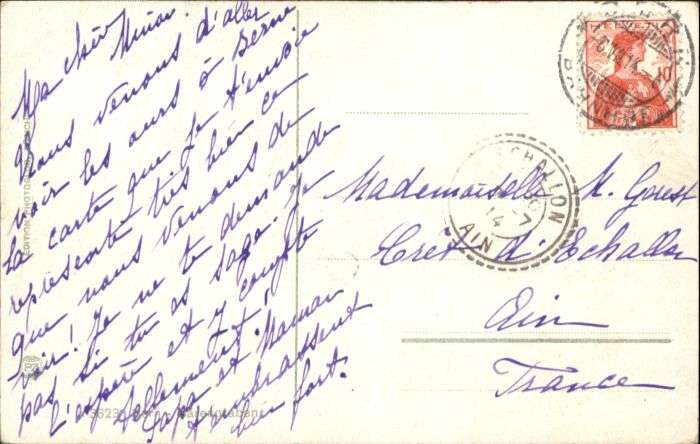 Ma chère Mimi.
Nous venons d'aller
voir les ours à Berne
La carte que je t'envoie
représente très bien ce
que nous venons de
voir! Je ne te demande
pas si tu es sage. Je
l'espère et j'y compte
tellement!
Papa et Maman
t'embrassent
bien fort.
Mademoiselle M. Goust
Crêt d'Echallon
Ain
France
ECHALLON
14
AIN
10